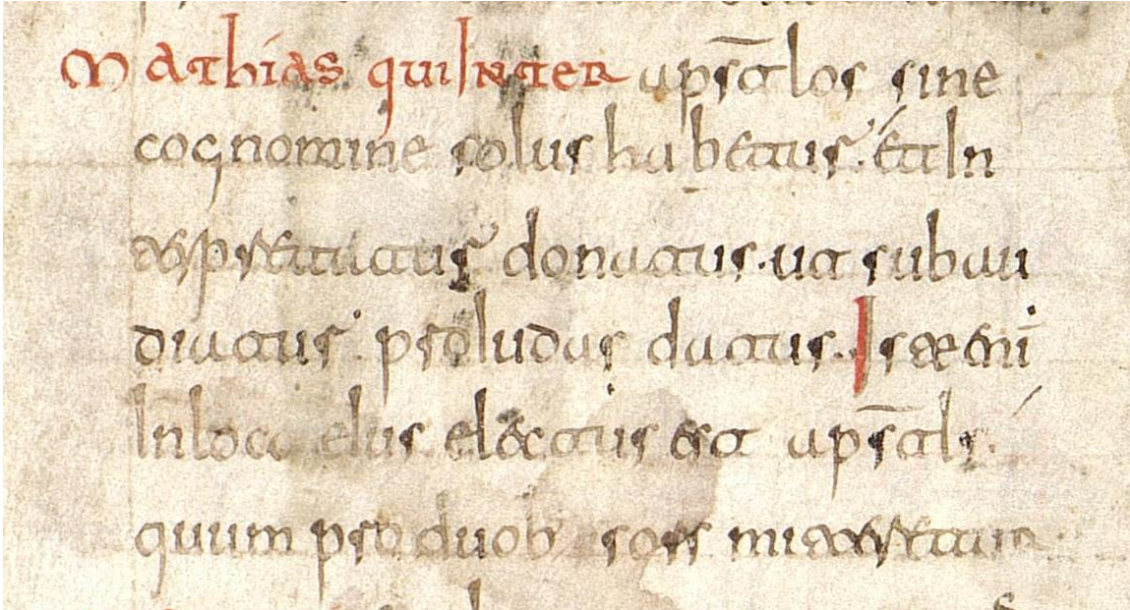 Mathias qui Inter apsτlos sine
cognomine solus habetur. et In
terpretatur donatus. ut subau
diatur. pro Iudas datus. Iste enī
In loco eius electus est apsτls.
quum pro duob sors mitteretur